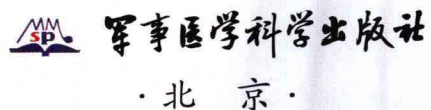 MM
sp
军事医学科学出版社
·北 京·